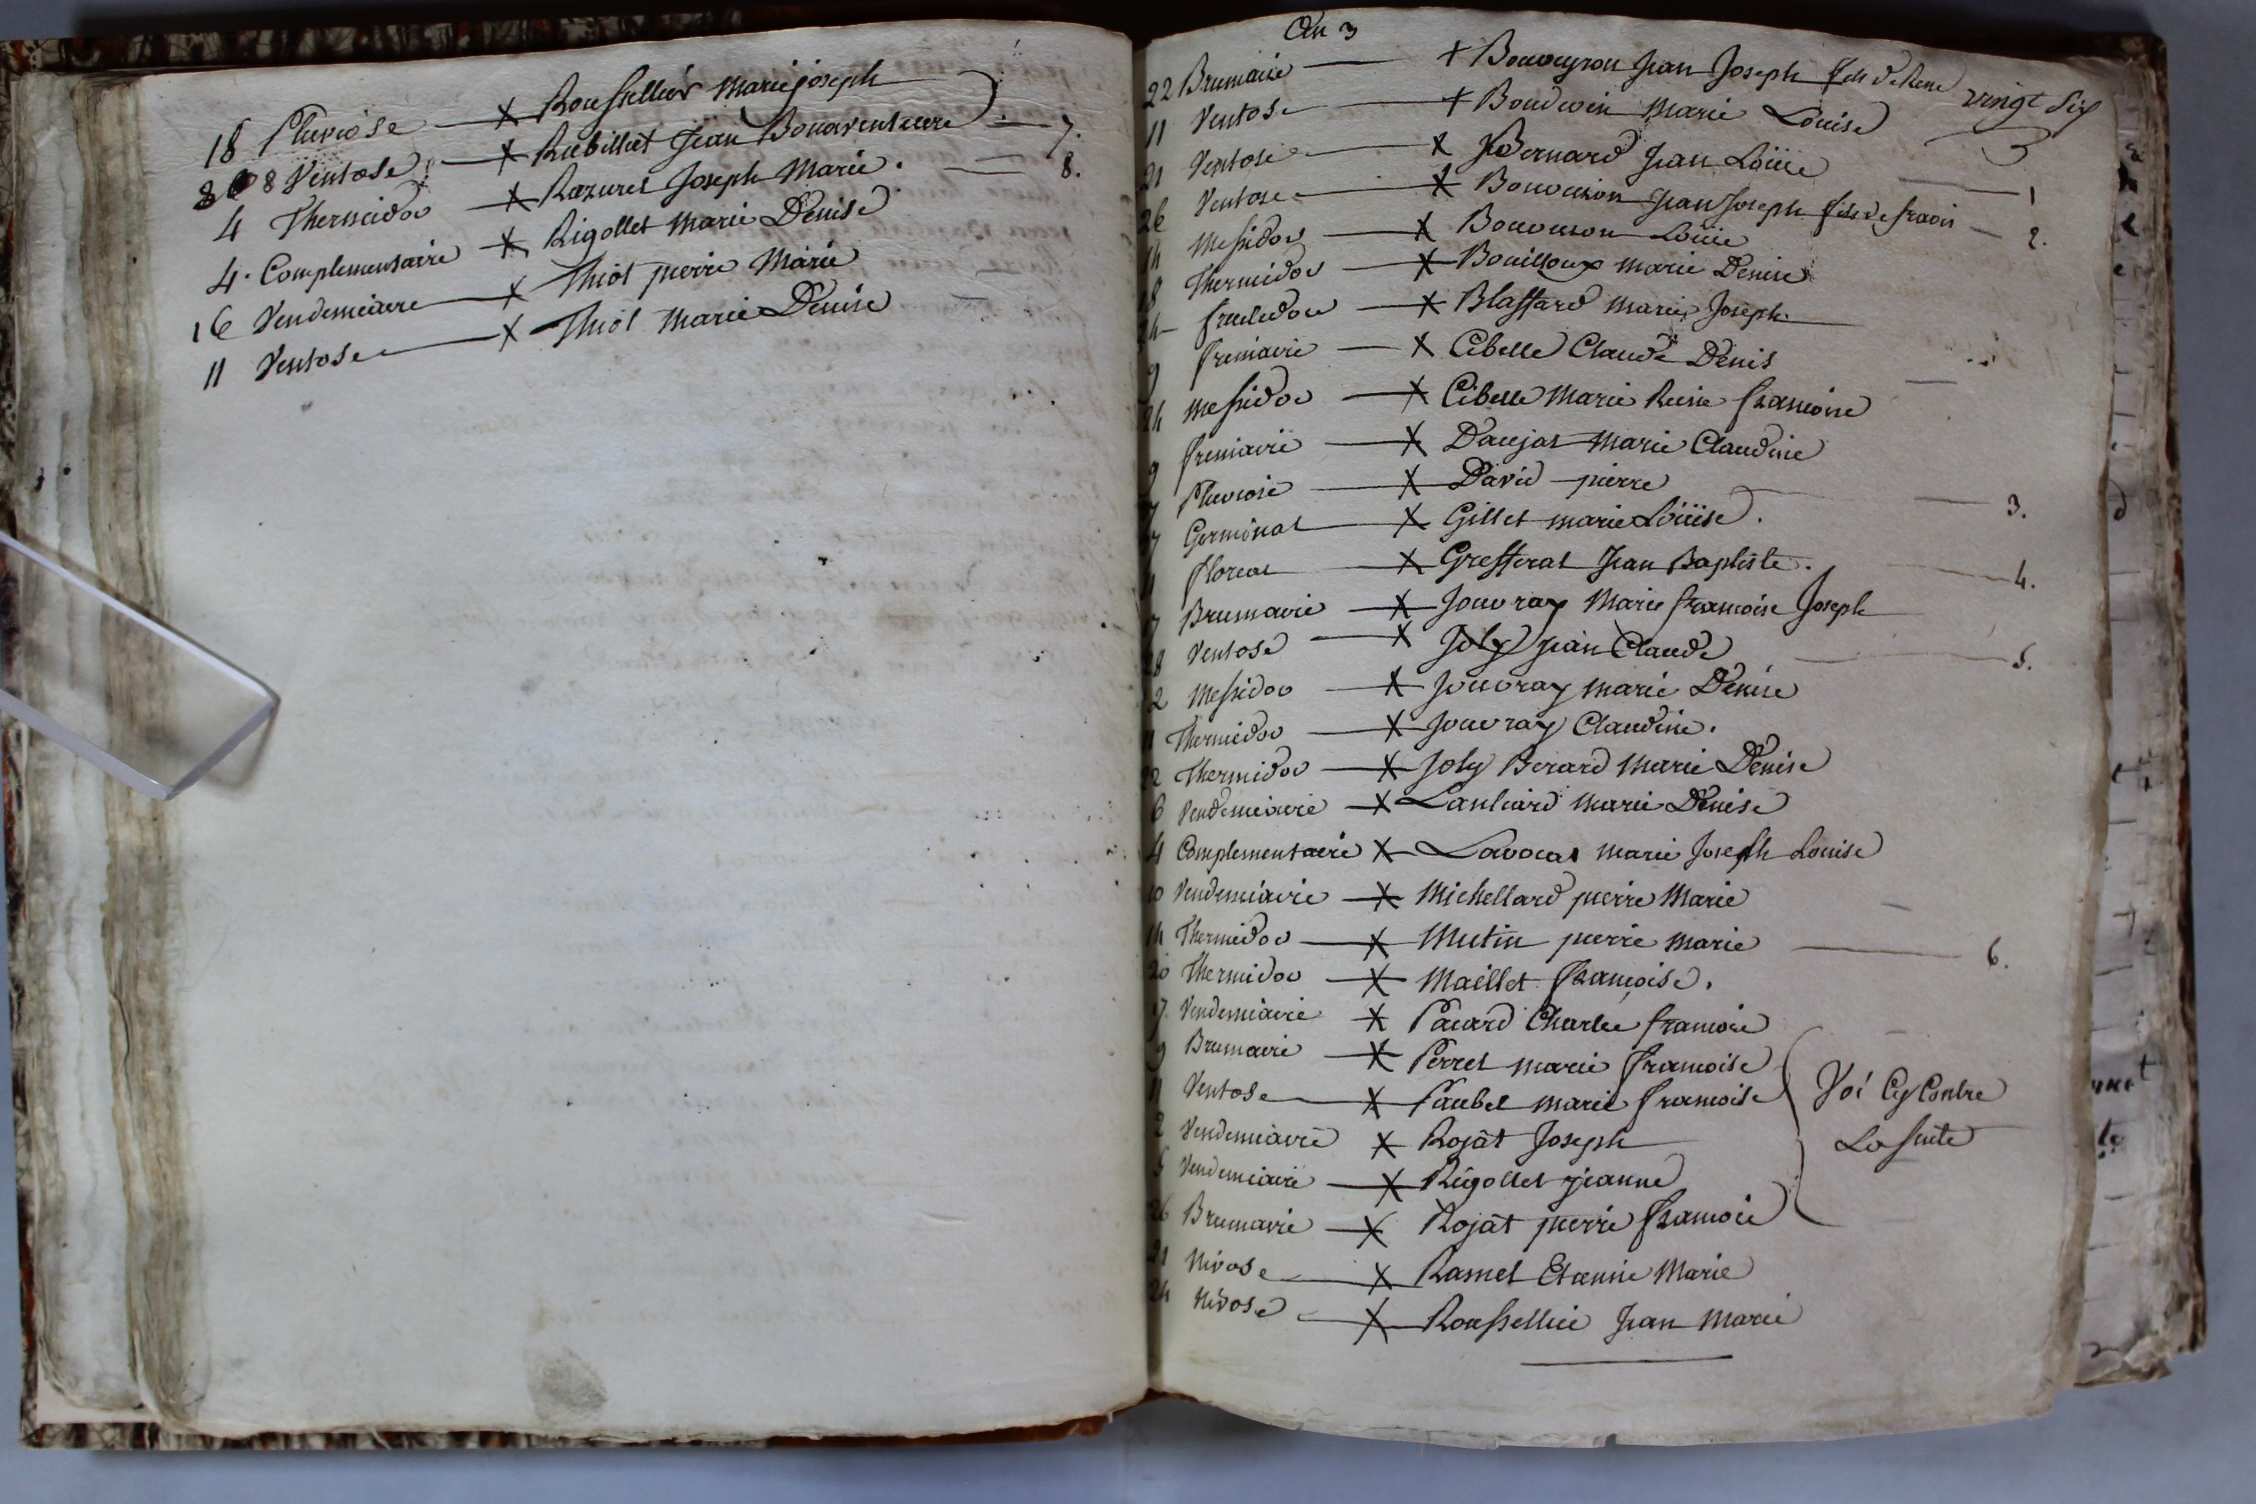 18 Pluviose — X Roussellier Marie joseph
8 8 Ventose — X Rubillet Jean Bonaventure . — 7.
4 Thermidor — X Razuret Joseph Marie . — 8.
4. Complementaire X Rigollet Marie Denise
16 Vendemiaire — X Thiot pierre Marie
11 Ventose — X Thiot Marie Denise
An 3
22 Brumaire — + Bouveyron Jean Joseph fils de Rene vingt Six
11 Ventose — + Boudwin Marie Louise
21 Ventose — X Bernard Jean Loüie — 1
26 Ventose — X Bouvouson Jean Joseph fils de francois — 2.
14 Messidor — X Bouvouson Loüie
18 Thermidor — X Bouilloux marie Denise
24 fructidor — X Blassard Marie Joseph
9 frimaire — X Cibelle Claude Denis
24 Messidor — X Cibelle Marie Reine francoise
9 frimaire — X Daujat Marie Claudine
7 Pluviose — X David pierre — 3.
7 Germinal — X Gillet marie Loüise .
11 floreal X Grefferat Jean Baptiste . — 4.
7 Brumaire — X Jouvray Marie francoise Joseph
28 Ventose — X Joly jean Claude — 5.
2 Messidor — X Jouvray marie Denise
11 Thermidor — X Jouvray Claudine .
22 Thermidor — X Joly Berard Marie Denise
6 Vendemiaire — X Lanliard Marie Denise
4 Complementaire X Lavocat marie Joseph Louise
10 Vendemiaire — X Michellard pierre Marie
14 Thermidor — X Mutin pierre Marie — 6.
20 Thermidor — X Maillet françoise .
7 Vendemiaire X Pacard Charles francois
9 Brumaire — X Perret marie francoise
11 Ventose — X Paubel marie francoise Voi Cy Contre
2 Vendemiaire X Rojat Joseph La suite
5 Vendemiaire — X Rigollet jeanne
26 Brumaire — X Rojat pierre francois
21 Nivose — X Ramel Etienne Marie
24 Nivose — X Roussellier Jean Marie